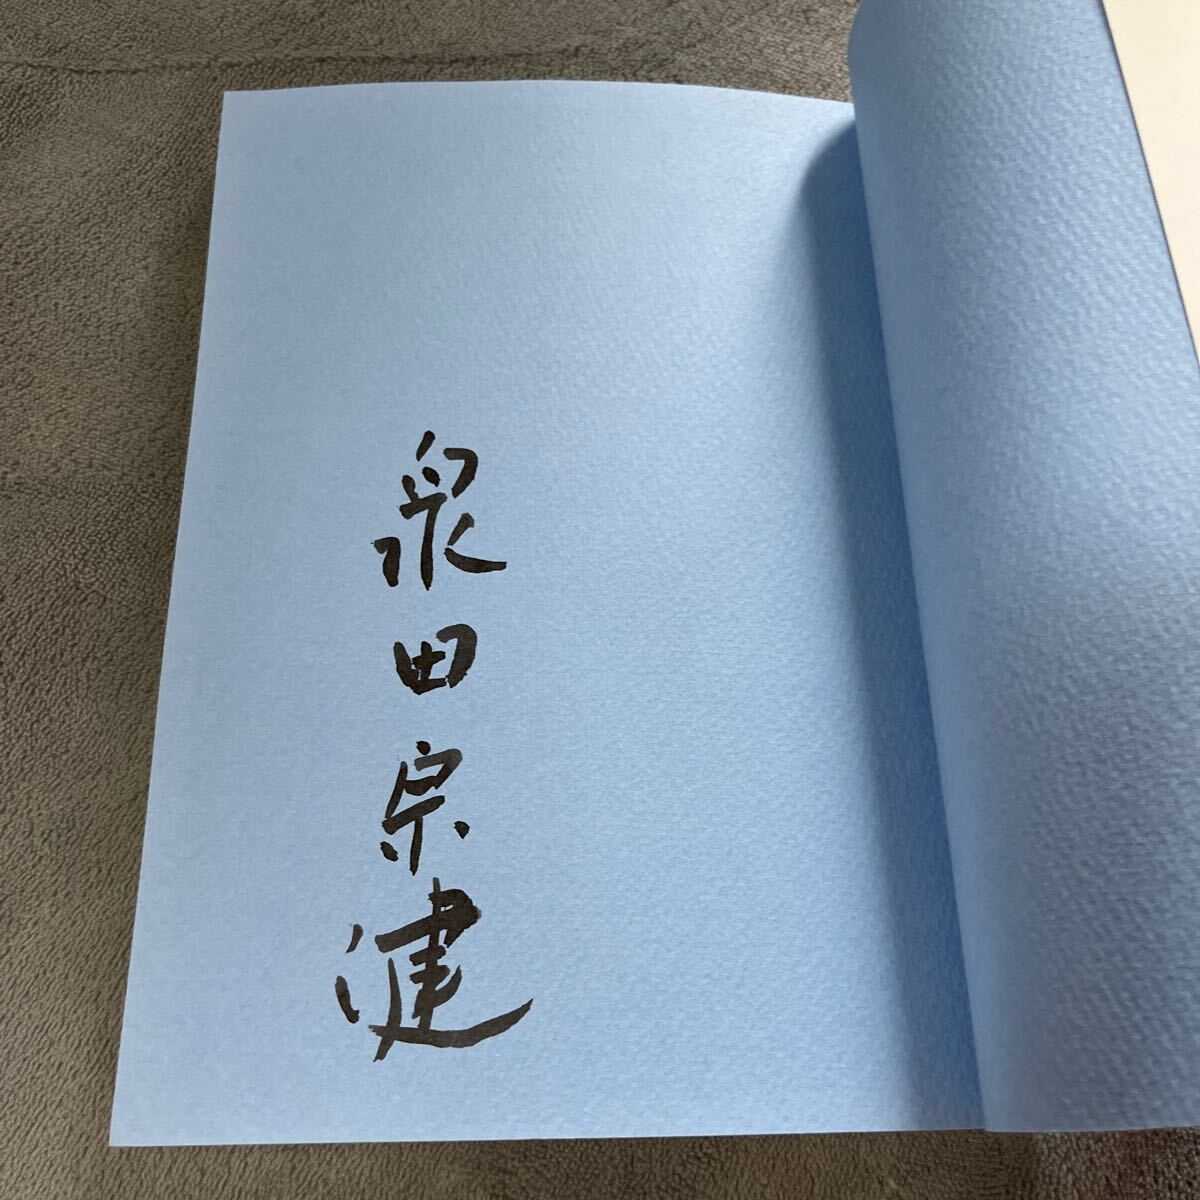 泉田宗健